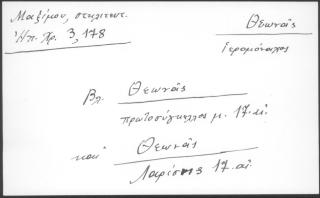 Μαξίμου, στηλιτευτ.
Ἠπ. Χρ. 3, 178
Θεωνᾶς
Ἱερομόναχος
Βλ. Θεωνᾶς
πρωτοσύγκελλος μ. 17. αἰ.
καὶ Θεωνᾶς
Λαρίσης 17. αἰ.